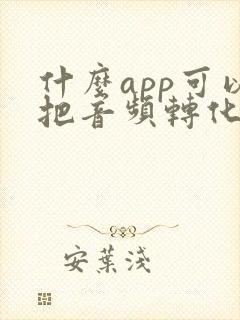 什麼app可以
把音頻轉化
安葉淺